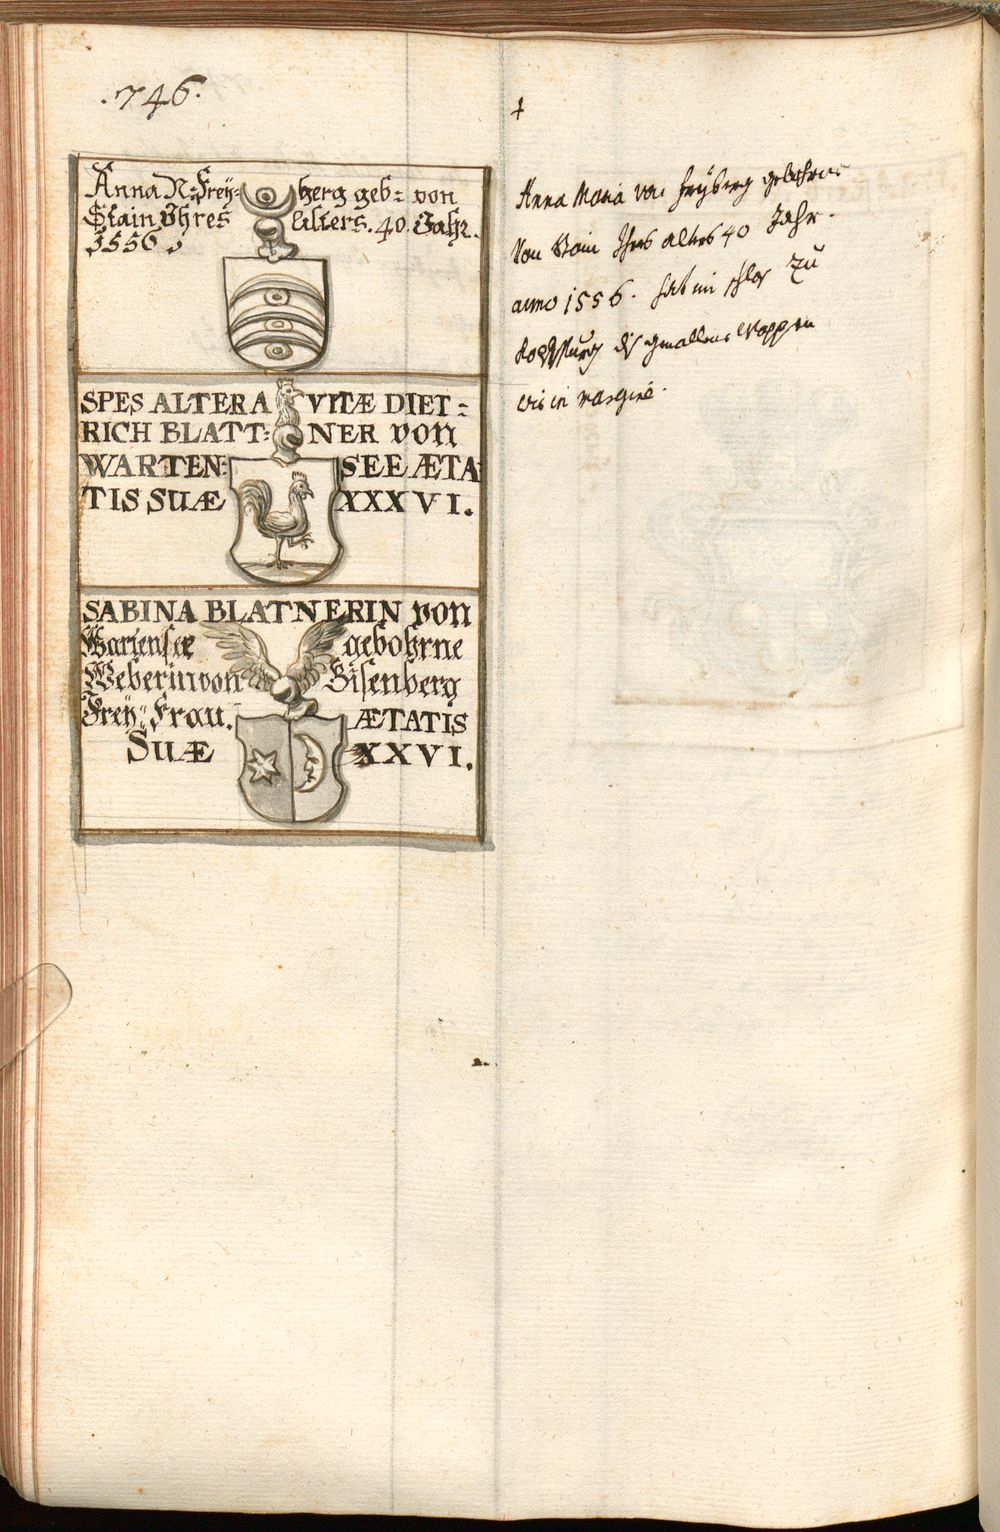 .746.
Anna N: Freÿ= berg geb: von
Stain Yhres Alters. 40. Jahr.
1556.
SPES ALTERA VITÆ DIET=
RICH BLATT= NER von
WARTEN= SEE ÆTA
TIS SUÆ XXXVI.
SABINA BLATNERIN von
Wartensee gebohrne
Weberin von Eisenberg
Freÿ: Frau. ÆTATIS
SUÆ XXVI.
Anna Maria von Freÿberg gebohrne
von Stain Ihres alters 40 Jahr.
anno 1556. hat im schlos zu
dis gmaltene Wappen
wie in margine.